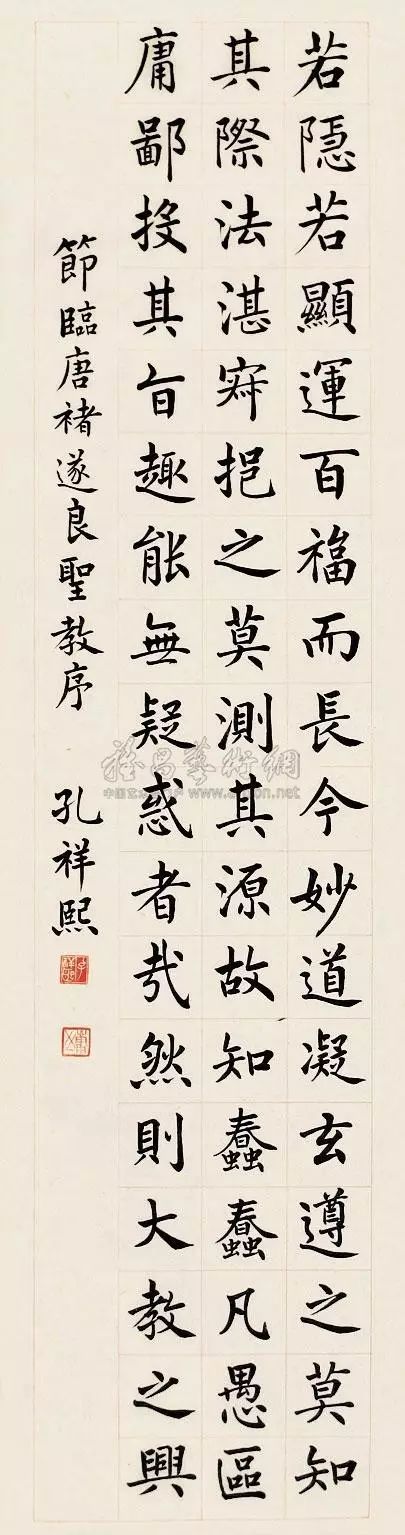 若隱若顯運百福而長今妙道凝玄遵之莫知
其際法湛寂挹之莫測其源故知蠢蠢凡愚區
庸鄙投其旨趣能無疑惑者哉然則大教之興
節臨唐褚遂良聖教序 孔祥熙
www.artron.net